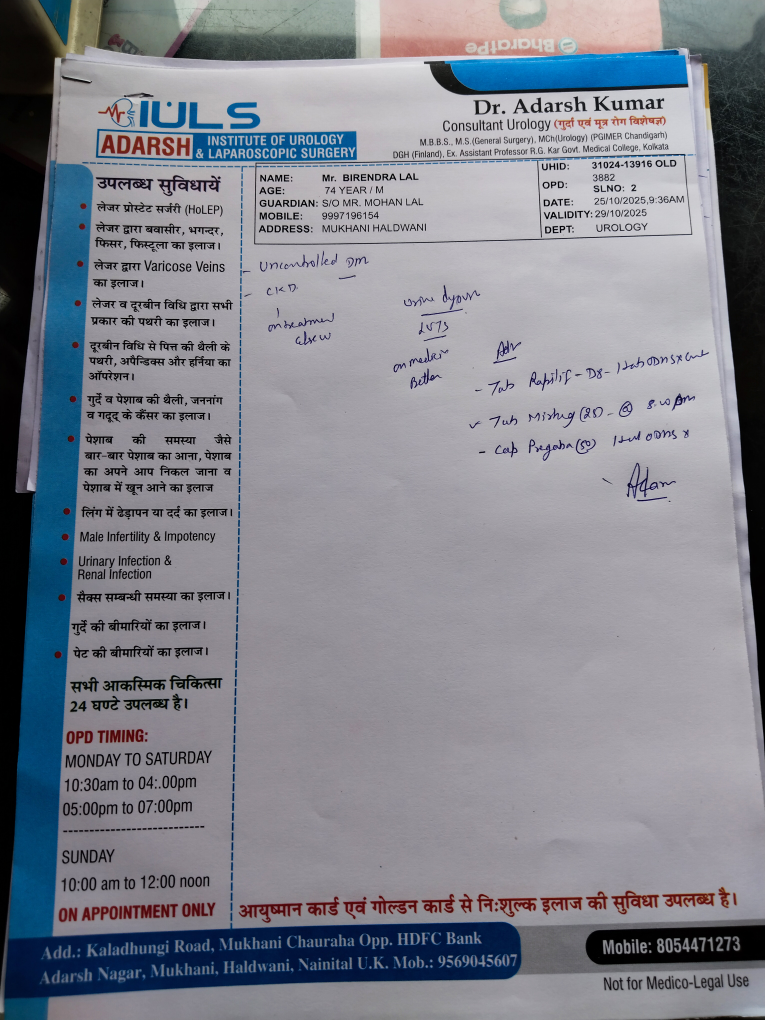 BharatPe
IULS
ADARSH INSTITUTE OF UROLOGY
& LAPAROSCOPIC SURGERY
Dr. Adarsh Kumar
Consultant Urology (गुर्दा एवं मूत्र रोग विशेषज्ञ)
M.B.B.S., M.S.(General Surgery), MCh(Urology) (PGIMER Chandigarh)
DGH (Finland), Ex. Assistant Professor R.G. Kar Govt. Medical College, Kolkata
NAME: Mr. BIRENDRA LAL
AGE: 74 YEAR / M
GUARDIAN: S/O MR. MOHAN LAL
MOBILE: 9997196154
ADDRESS: MUKHANI HALDWANI
UHID: 31024-13916 OLD
OPD: 3882
SLNO: 2
DATE: 25/10/2025,9:36AM
VALIDITY: 29/10/2025
DEPT: UROLOGY
उपलब्ध सुविधायें
लेजर प्रोस्टेट सर्जरी (HoLEP)
लेजर द्वारा बवासीर, भगन्दर,
फिसर, फिस्टूला का इलाज।
लेजर द्वारा Varicose Veins
का इलाज।
लेजर व दूरबीन विधि द्वारा सभी
प्रकार की पथरी का इलाज।
दूरबीन विधि से पित्त की थैली के
पथरी, अपैन्डिक्स और हर्निया का
ऑपरेशन।
गुर्दे व पेशाब की थैली, जननांग
व गदूद् के कैंसर का इलाज।
पेशाब की समस्या जैसे
बार-बार पेशाब का आना, पेशाब
का अपने आप निकल जाना व
पेशाब में खून आने का इलाज
लिंग में ढेड़ापन या दर्द का इलाज।
Male Infertility & Impotency
Urinary Infection &
Renal Infection
सैक्स सम्बन्धी समस्या का इलाज।
गुर्दे की बीमारियों का इलाज।
पेट की बीमारियों का इलाज।
सभी आकस्मिक चिकित्सा
24 घण्टे उपलब्ध है।
OPD TIMING:
MONDAY TO SATURDAY
10:30am to 04:.00pm
05:00pm to 07:00pm
SUNDAY
10:00 am to 12:00 noon
ON APPOINTMENT ONLY
- Uncontrolled DM
- CKD
on treatment
LUTS
on medicine
Better
Adv
- Tab Rapilif - D8 - 1 tab ODHS x
- Tab (25) - 8.00 pm
- Cap Pregaba (50) ODHS x
आयुष्मान कार्ड एवं गोल्डन कार्ड से निःशुल्क इलाज की सुविधा उपलब्ध है।
Add.: Kaladhungi Road, Mukhani Chauraha Opp. HDFC Bank
Adarsh Nagar, Mukhani, Haldwani, Nainital U.K. Mob.: 9569045607
Mobile: 8054471273
Not for Medico-Legal Use